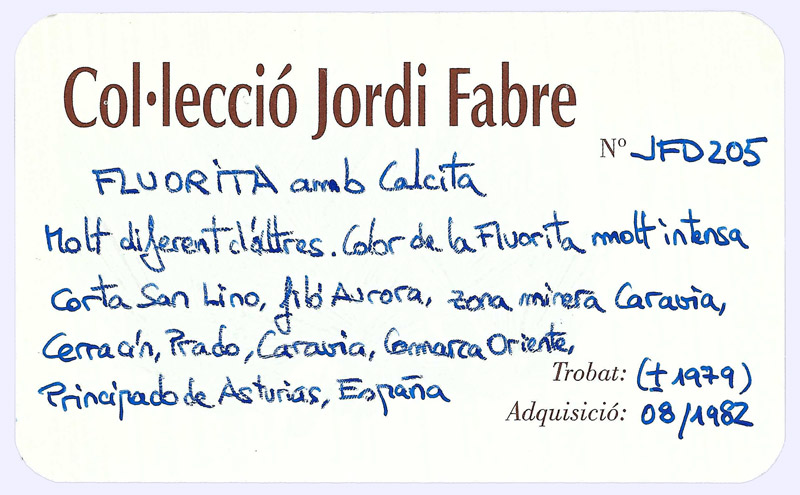 Col·lecció Jordi Fabre
Nº JFD205
FLUORITA amb Calcita
Molt diferent d'altres. Color de la Fluorita molt intensa
Corta San Lino, filó Aurora, zona minera Caravia,
Cerracín, Prado, Caravia, Comarca Oriente,
Principado de Asturias, España
Trobat: (± 1979)
Adquisició: 08/1982